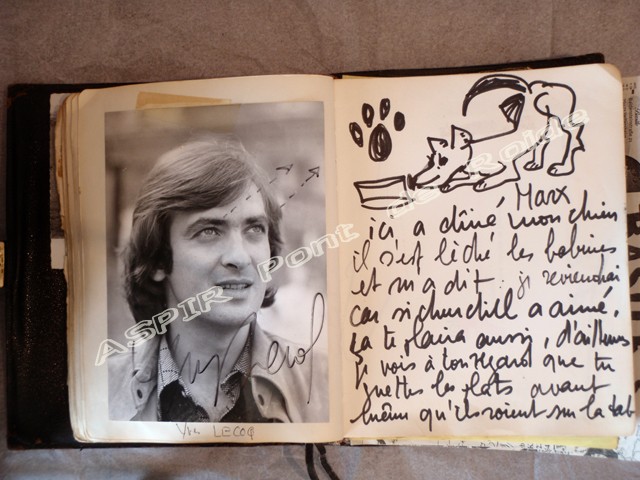 VAL LECOQ
Marx
ici a dîné mon chien
il s'est léché les babines
et m'a dit : je reviendrai
car si churchill a aimé,
ça te plaira aussi, d'ailleurs
je vois à ton regard que tu
guettes les plats avant
même qu'ils soient sur la tab
ASPIR Pont de Roide